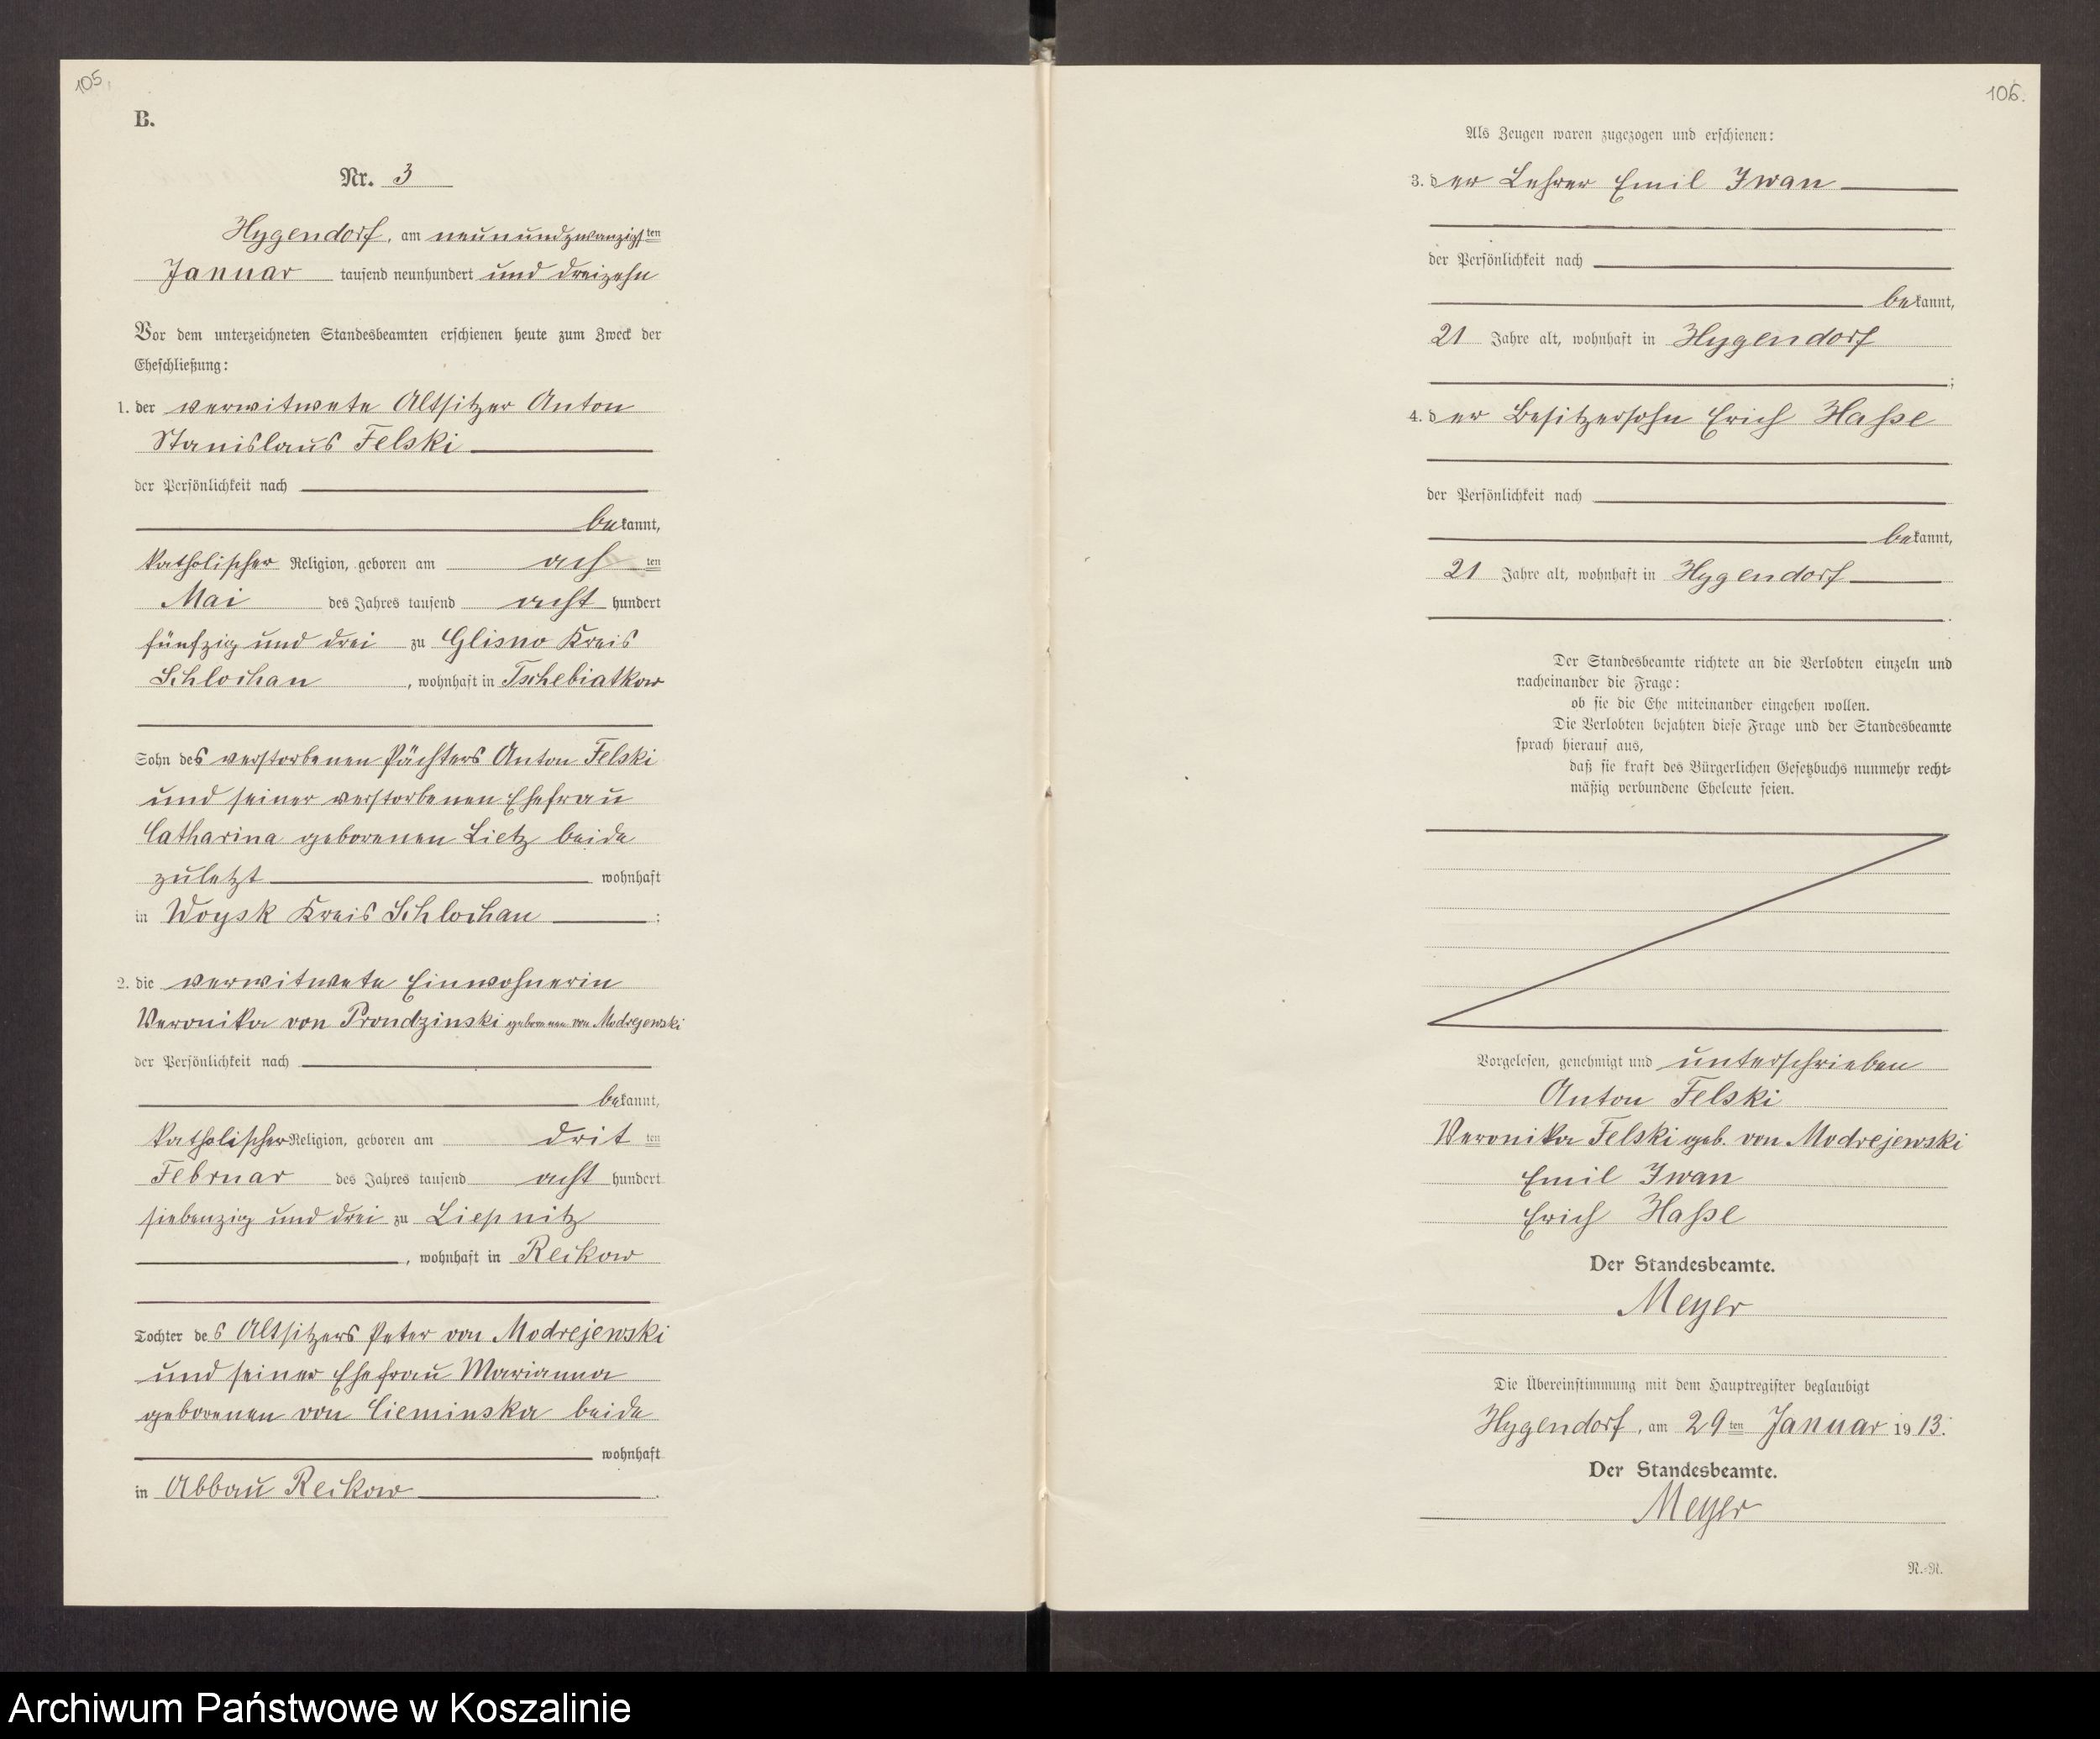 105.
B.
Nr. 3
Hygendorf, am neunundzwanzigsten
Januar tausend neunhundert und dreizehn
Vor dem unterzeichneten Standesbeamten erschienen heute zum Zweck der
Eheschließung:
1. der verwitwete Altsitzer Anton
Stanislaus Felski
der Persönlichkeit nach
bekannt,
katholischer Religion, geboren am ach ten
Mai des Jahres tausend acht hundert
fünfzig und drei zu Glisno Kreis
Schlochau, wohnhaft in Tschebiatkow
Sohn des verstorbenen Pächters Anton Felski
und seiner verstorbenen Ehefrau
Catharina geborenen Lietz beide
zuletzt wohnhaft
in Woysk Kreis Schlochau ;
2. die verwitwete Einwohnerin
Veronika von Prondzinski geborenen von Modrejewski
der Persönlichkeit nach
bekannt,
katholischer Religion, geboren am drit ten
Februar des Jahres tausend acht hundert
siebenzig und drei zu Liepnitz
, wohnhaft in Reckow
Tochter des Altsitzers Peter von Modrejewski
und seiner Ehefrau Marianna
geborenen von Cieminska beide
wohnhaft
in Abbau Reckow .
106.
Als Zeugen waren zugezogen und erschienen:
3. der Lehrer Emil Iwan
der Persönlichkeit nach
bekannt,
21 Jahre alt, wohnhaft in Hygendorf
;
4. der Besitzersohn Erich Haße
der Persönlichkeit nach
bekannt,
21 Jahre alt, wohnhaft in Hygendorf
.
Der Standesbeamte richtete an die Verlobten einzeln und
nacheinander die Frage:
ob sie die Ehe miteinander eingehen wollen.
Die Verlobten bejahten diese Frage und der Standesbeamte
sprach hierauf aus,
daß sie kraft des Bürgerlichen Gesetzbuchs nunmehr recht-
mäßig verbundene Eheleute seien.
Vorgelesen, genehmigt und unterschrieben
Anton Felski
Veronika Felski geb. von Modrejewski
Emil Iwan
Erich Haße
Der Standesbeamte.
Meyer
Die Übereinstimmung mit dem Hauptregister beglaubigt
Hygendorf, am 29ten Januar 1913.
Der Standesbeamte.
Meyer
R.-R.
Archiwum Państwowe w Koszalinie